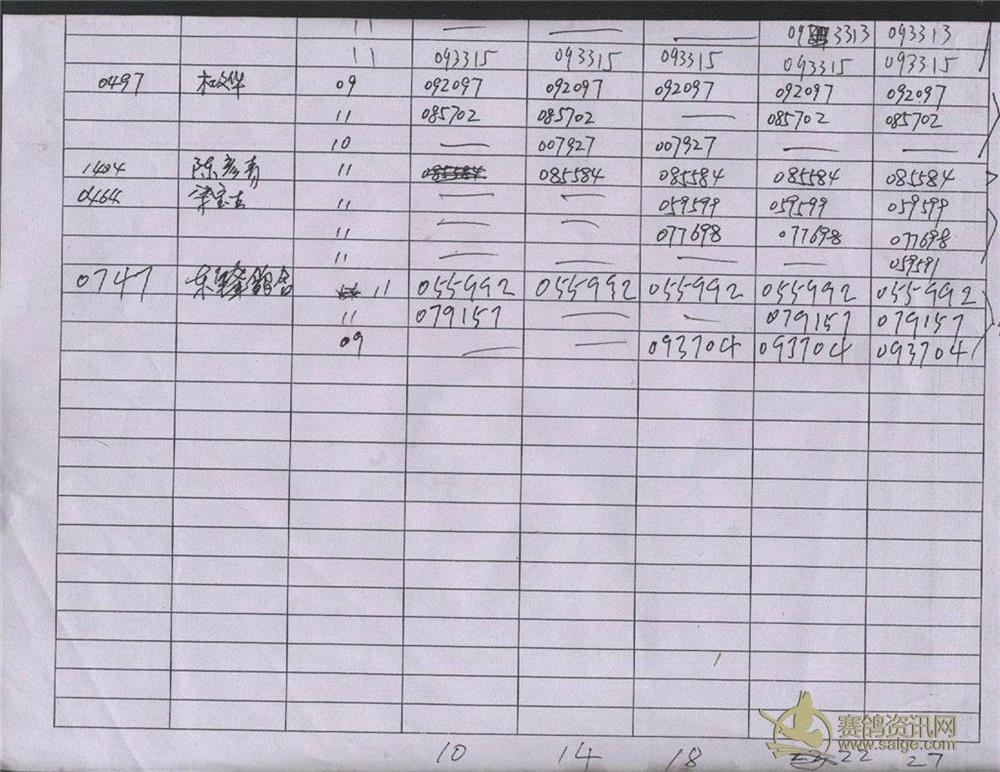 11 — — — 093313 093313
11 093315 093315 093315 093315 093315
0497 09 092097 092097 092097 092097 092097
11 085702 085702 — 085702 085702
10 — 007927 007927 — —
1404 陈彦青 11 085584 085584 085584 085584 085584
0464 11 — — 059599 059599 059599
11 — — 077698 077698 077698
11 — — — — 059591
0747 11 055992 055992 055992 055992 055992
11 079157 — — 079157 079157
09 — — 093704 093704 093704
赛鸽资讯网
www.saige.com
10 14 18 22 27